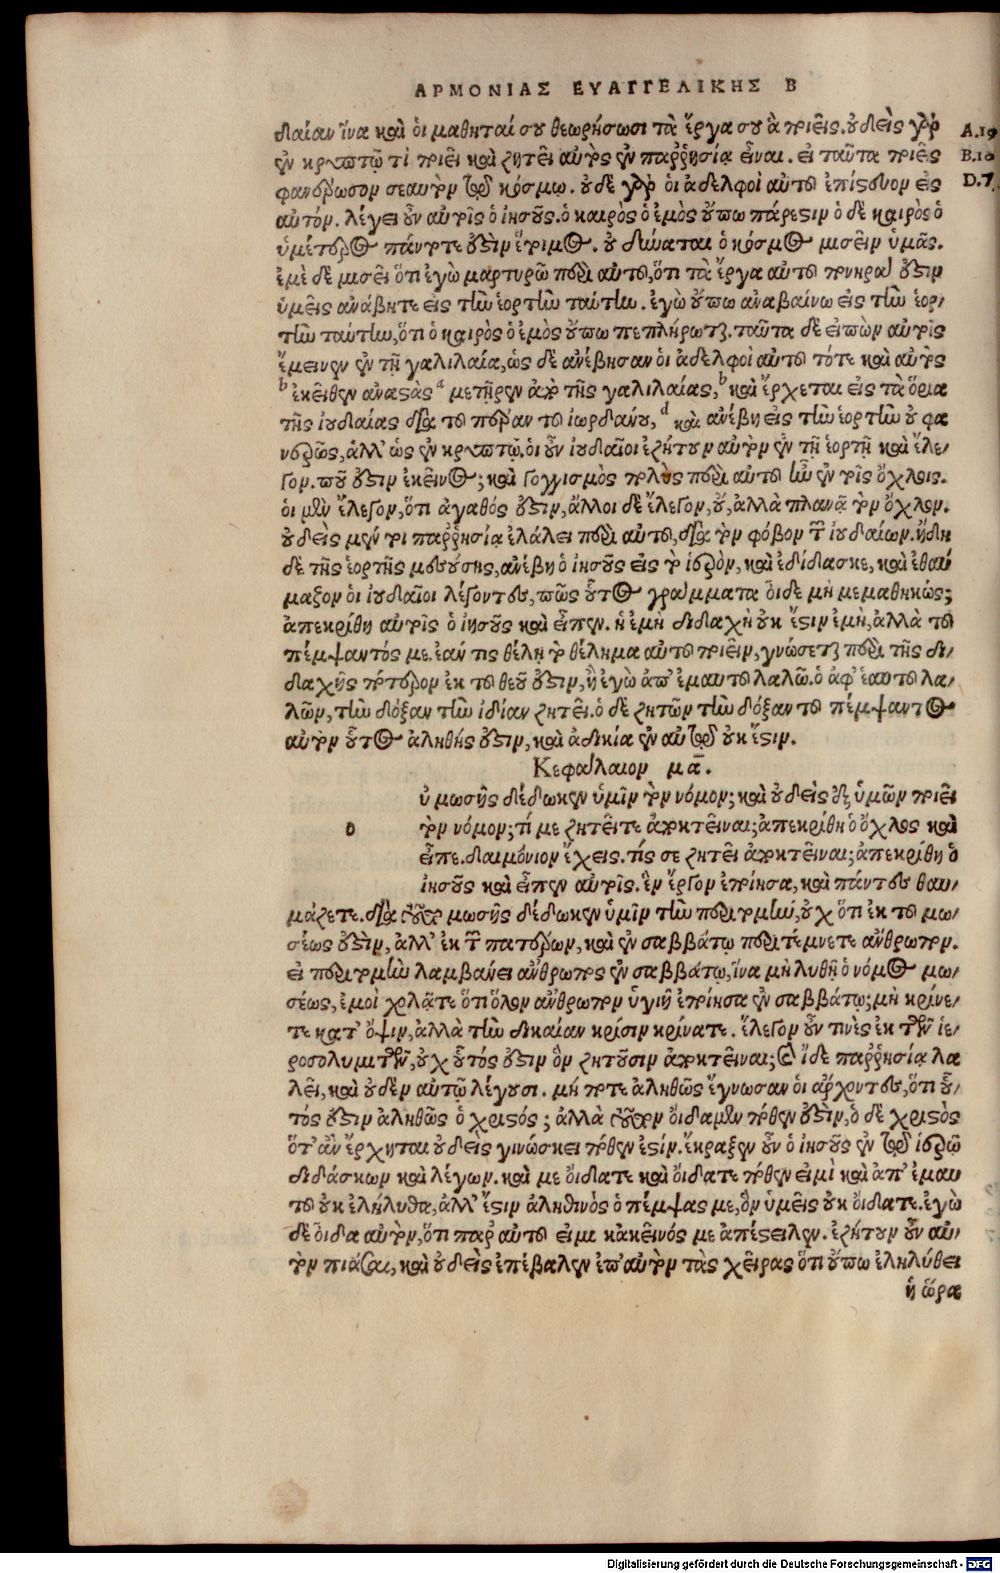 ΑΡΜΟΝΙΑΣ ΕΥΑΓΓΕΛΙΚΗΣ Β
δαίαν ἵνα καὶ ὁι μαθηταί σου θεωρήσωσι τὰ ἔργα σου ἃ ποιεῖς. οὐδεὶς γὰρ A.19
ἐν κρυπτῷ τὶ ποιεῖ καὶ ζητεῖ αὐτὸς ἐν παῤῥησίᾳ εἶναι. εἰ ταῦτα ποιεῖς B.10
φανέρωσον σεαυτὸν τῷ κόσμῳ. οὐδὲ γὰρ ὁι ἀδελφοὶ αὐτοῦ ἐπίστευον εἰς D.7.
αὐτόν. λέγει οὖν αὐτοῖς ὁ ἰησοῦς. ὁ καιρὸς ὁ ἐμὸς οὔπω πάρεστιν ὁ δὲ καιρὸς ὁ
ὑμέτερος πάντοτε ἐστὶν ἕτοιμος. οὐ δύναται ὁ κόσμος μισεῖν ὑμᾶς.
ἐμὲ δὲ μισεῖ ὅτι ἐγὼ μαρτυρῶ περὶ αὐτοῦ, ὅτι τὰ ἔργα αὐτοῦ πονηρά ἐστιν
ὑμεῖς ἀνάβητε εἰς τὴν ἑορτὴν ταύτην. ἐγὼ οὔπω ἀναβαίνω εἰς τὴν ἑορ/
τὴν ταύτην, ὅτι ὁ καιρὸς ὁ ἐμὸς οὔπω πεπλήρωται. ταῦτα δὲ εἰπὼν αὐτοῖς
ἔμεινεν ἐν τῇ γαλιλαίᾳ, ὡς δὲ ἀνέβησαν ὁι ἀδελφοὶ αὐτοῦ τότε καὶ αὐτὸς
b ἐκεῖθεν ἀναστὰς a μετῆρεν ἀπὸ τῆς γαλιλαίας, b καὶ ἔρχεται εἰς τὰ ὅρια
τῆς ἰουδαίας διὰ τοῦ πέραν τοῦ ἰωρδάνου, d καὶ ἀνέβη εἰς τὴν ἑορτὴν οὐ φα
νερῶς, ἀλλ' ὡς ἐν κρυπτῷ. ὁι οὖν ἰουδαῖοι ἐζήτουν αὐτὸν ἐν τῇ ἑορτῇ καὶ ἔλε/
γον. ποῦ ἐστιν ἐκεῖνος; καὶ γογγισμὸς πολὺς περὶ αὐτοῦ ἦν ἐν τοῖς ὄχλοις.
ὁι μὲν ἔλεγον, ὅτι ἀγαθός ἐστιν, ἄλλοι δὲ ἔλεγον, οὔ, ἀλλὰ πλανᾷ τὸν ὄχλον.
οὐδεὶς μέν τοι παῤῥησίᾳ ἐλάλει περὶ αὐτοῦ, διὰ τὸν φόβον τῶν ἰουδαίων. ἤδη
δὲ τῆς ἑορτῆς μεσούσης, ἀνέβη ὁ ἰησοῦς εἰς τὸ ἱερὸν, καὶ ἐδίδασκε, καὶ ἐθαύ
μαζον ὁι ἰουδαῖοι λέγοντες, πῶς οὗτος γράμματα οἶδε μὴ μεμαθηκώς;
ἀπεκρίθη αὐτοῖς ὁ ἰησοῦς καὶ εἶπεν. ἡ ἐμὴ διδαχὴ οὐκ ἔστιν ἐμὴ, ἀλλὰ τοῦ
πέμψαντός με. ἐάν τις θέλῃ τὸ θέλημα αὐτοῦ ποιεῖν, γνώσεται περὶ τῆς δι/
δαχῆς πότερον ἐκ τοῦ θεοῦ ἐστιν, ἢ ἐγὼ ἀπ' ἐμαυτοῦ λαλῶ. ὁ ἀφ' ἑαυτοῦ λα/
λῶν, τὴν δόξαν τὴν ἰδίαν ζητεῖ. ὁ δὲ ζητῶν τὴν δόξαν τοῦ πέμψαντος
αὐτὸν οὗτος ἀληθής ἐστιν, καὶ ἀδικία ἐν αὐτῷ οὐκ ἔστιν.
Κεφάλαιον μα.
ὐ μωσῆς δέδωκεν ὑμῖν τὸν νόμον; καὶ οὐδεὶς ἐξ ὑμῶν ποιεῖ
ο τὸν νόμον; τί με ζητεῖτε ἀποκτεῖναι; ἀπεκρίθη ὁ ὄχλος καὶ
εἶπε. δαιμόνιον ἔχεις. τίς σε ζητεῖ ἀποκτεῖναι; ἀπεκρίθη ὁ
ἰησοῦς καὶ εἶπεν αὐτοῖς. ἓν ἔργον ἐποίησα, καὶ πάντες θαυ/
μάζετε. διὰ τοῦτο μωσῆς δέδωκεν ὑμῖν τὴν περιτομὴν, οὐχ ὅτι ἐκ τοῦ μω/
σέως ἐστὶν, ἀλλ' ἐκ τῶν πατέρων, καὶ ἐν σαββάτῳ περιτέμνετε ἄνθρωπον.
εἰ περιτομὴν λαμβάνει ἄνθρωπος ἐν σαββάτῳ, ἵνα μὴ λυθῇ ὁ νόμος μω/
σέως, ἐμοὶ χολᾶτε ὅτι ὅλον ἄνθρωπον ὑγιῆ ἐποίησα ἐν σαββάτῳ; μὴ κρίνε/
τε κατ' ὄψιν, ἀλλὰ τὴν δικαίαν κρίσιν κρίνατε. ἔλεγον οὖν τινὲς ἐκ τῶν ἱε/
ροσολυμιτῶν, οὐχ οὗτός ἐστιν ὃν ζητοῦσιν ἀποκτεῖναι; καὶ ἴδε παῤῥησίᾳ λα
λεῖ, καὶ οὐδὲν αὐτῷ λέγουσι. μή ποτε ἀληθῶς ἔγνωσαν ὁι ἄρχοντες, ὅτι οὗ/
τός ἐστιν ἀληθῶς ὁ χριστός; ἀλλὰ τοῦτον οἴδαμεν πόθεν ἐστὶν, ὁ δὲ χριστὸς
ὅτ' ἂν ἔρχηται οὐδεὶς γινώσκει πόθεν ἐστίν. ἔκραξεν οὖν ὁ ἰησοῦς ἐν τῷ ἱερῷ
διδάσκων καὶ λέγων. καὶ με οἴδατε καὶ οἴδατε πόθεν εἰμὶ καὶ ἀπ' ἐμαυ
τοῦ οὐκ ἐλήλυθα, ἀλλ' ἔστιν ἀληθινὸς ὁ πέμψας με, ὃν ὑμεῖς οὐκ οἴδατε. ἐγὼ
δὲ οἶδα αὐτὸν, ὅτι παρ' αὐτοῦ εἰμι κἀκεῖνός με ἀπέστειλεν. ἐζήτουν οὖν αὐ/
τὸν πιάσαι, καὶ οὐδεὶς ἐπέβαλεν ἐπ' αὐτὸν τὰς χεῖρας ὅτι οὔπω ἐληλύθει
ἡ ὥρα
Digitalisierung gefördert durch die Deutsche Forschungsgemeinschaft - DFG